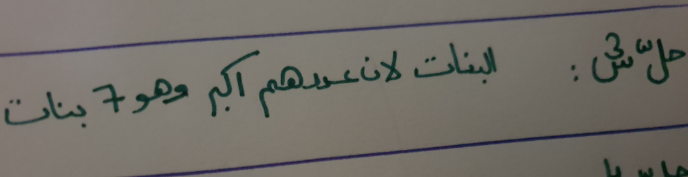 حل س3 : البنات لان عددهم اكبر وهو 7 بنات